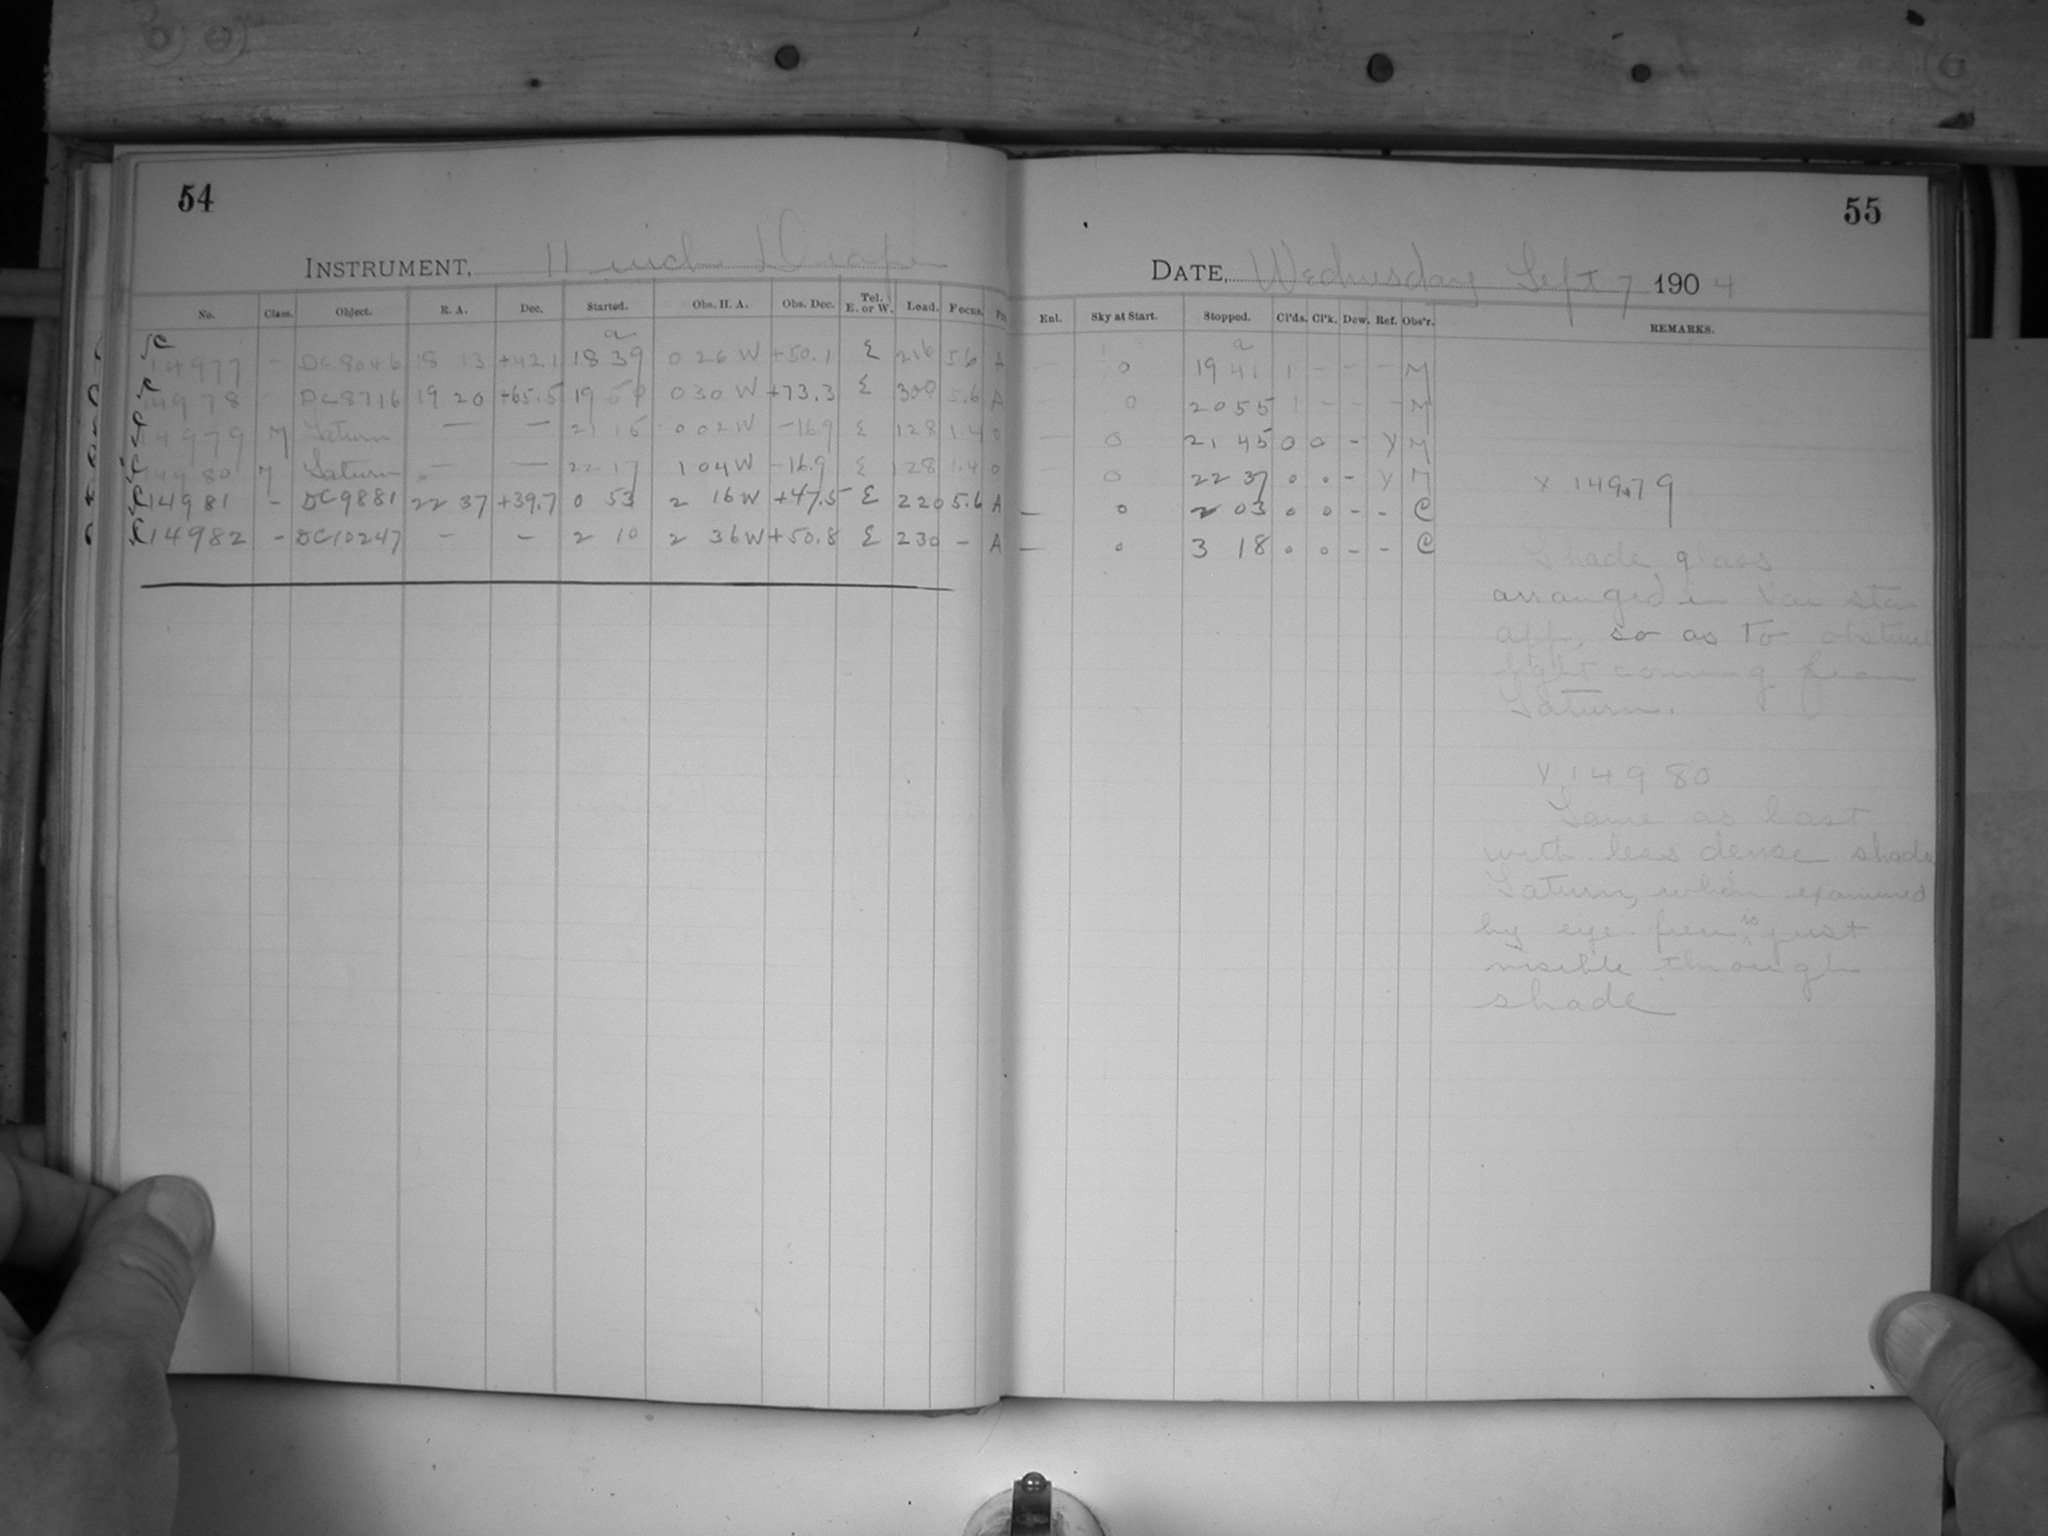 54
INSTRUMENT, 11 inch Draper
No. Class. Object. R. A. Dec. Started. Obs. H. A. Obs. Dec. Tel. E. or W. Load. Focus.
a
14977 - DC8046 18 13 +42.1 18 39 0 26 W +50.1 E 216 5.6 A
14978 - DC8716 19 20 +65.5 19 0 30 W +73.3 E 300 5.6 A
14979 M Saturn — — 21 15 0 02 W -16.9 E 128 1.4 0
14980 M Saturn — — 22 17 1 04 W -16.9 E 128 1.4 0
14981 - DC9881 22 37 +39.7 0 53 2 16 W +47.5 E 220 5.6 A
14982 - DC10247 - - 2 10 2 36 W +50.8 E 230 - A
55
DATE, Wednesday Sept 7 1904
Enl. Sky at Start. Stopped. Cl'ds. Cl'k. Dew. Ref. Obs'r. REMARKS.
a
— 0 19 41 1 - - - M
0 20 55 1 - - - M
— 0 21 45 0 0 - Y M
— 0 22 37 0 0 - Y M
— 0 2 03 0 0 - - C
— 0 3 18 0 0 - - C
X 14979
Shade glass
arranged in Var star
app, so as to
light coming from
Saturn.
Y 14980
Same as last
with less dense shade
Saturn, when examined
by eye piece is just
visible through
shade